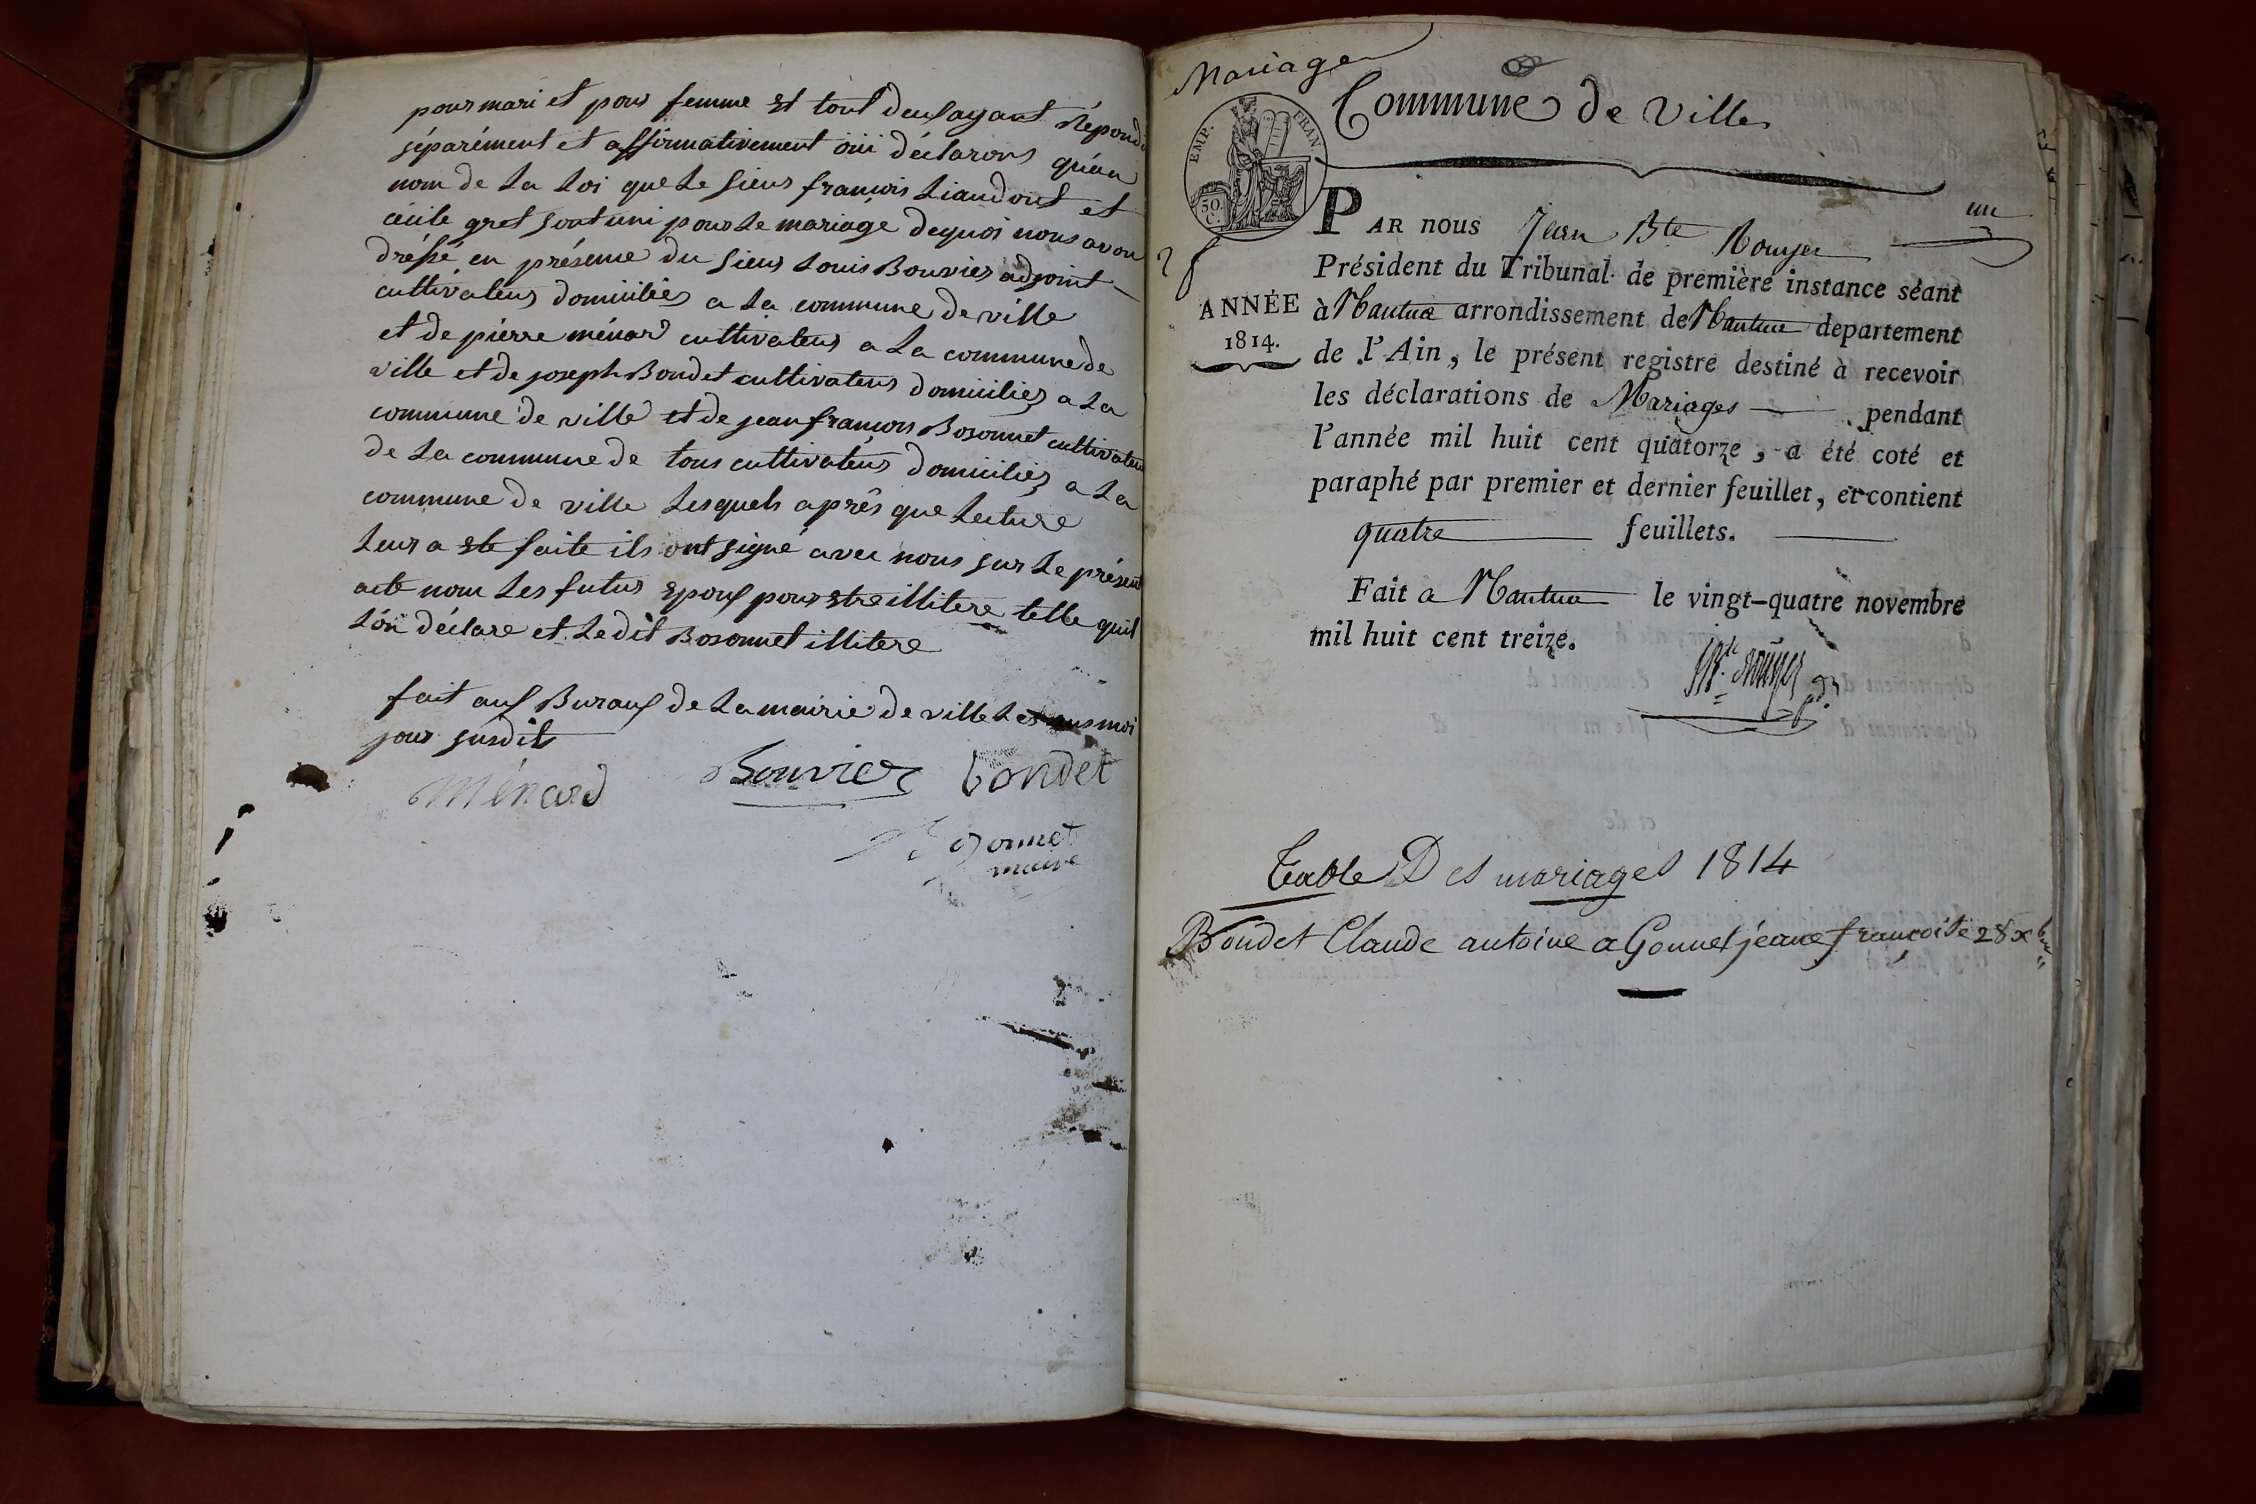 pour mari et pour femme et tout deux ayant répondu
séparément et affirmativement oui déclarons qu'au
nom de La Loi que Le sieur françois Liaudout et
cécile gret sont uni pour Le mariage dequoi nous avon
dréssé en présence du sieur Louis Bouvier adjoint
cultivateur domiciliés a La commune de ville
et de pièrre ménard cultivateur a La commune de
ville et de joseph Bondet cultivateur domiciliés a La
commune de ville et de jean françois Bozonnet cultivateur
de La commune de tous cultivateurs domiciliés a La
commune de ville Lesquels après que Lecture
Leur a ete faite ils ont signé avec nous sur Le présent
acte nom Les futur epoux pour etre illitere telle quil
L'on déclare et Le dit Bozonnet illitere
fait aux Buraux de La mairie de ville Les ans moi
jour susdit
Ménard Bouvier bondet
Bozonnet
maire
Mariage
Commune de Ville
EMP. FRAN
50.
C.
un
PAR nous Jean Bte Rouyer
Président du Tribunal de première instance séant
ANNÉE à Nantua arrondissement de Nantua departement
1814. de l'Ain, le présent registre destiné à recevoir
les déclarations de Mariages pendant
l'année mil huit cent quatorze, a été coté et
paraphé par premier et dernier feuillet, et contient
quatre feuillets.
Fait a Nantua le vingt-quatre novembre
mil huit cent treize.
JBte Rouyer
Table Des mariages 1814
Bondet Claude antoine a Gonnet jeane françoise 28 xbre